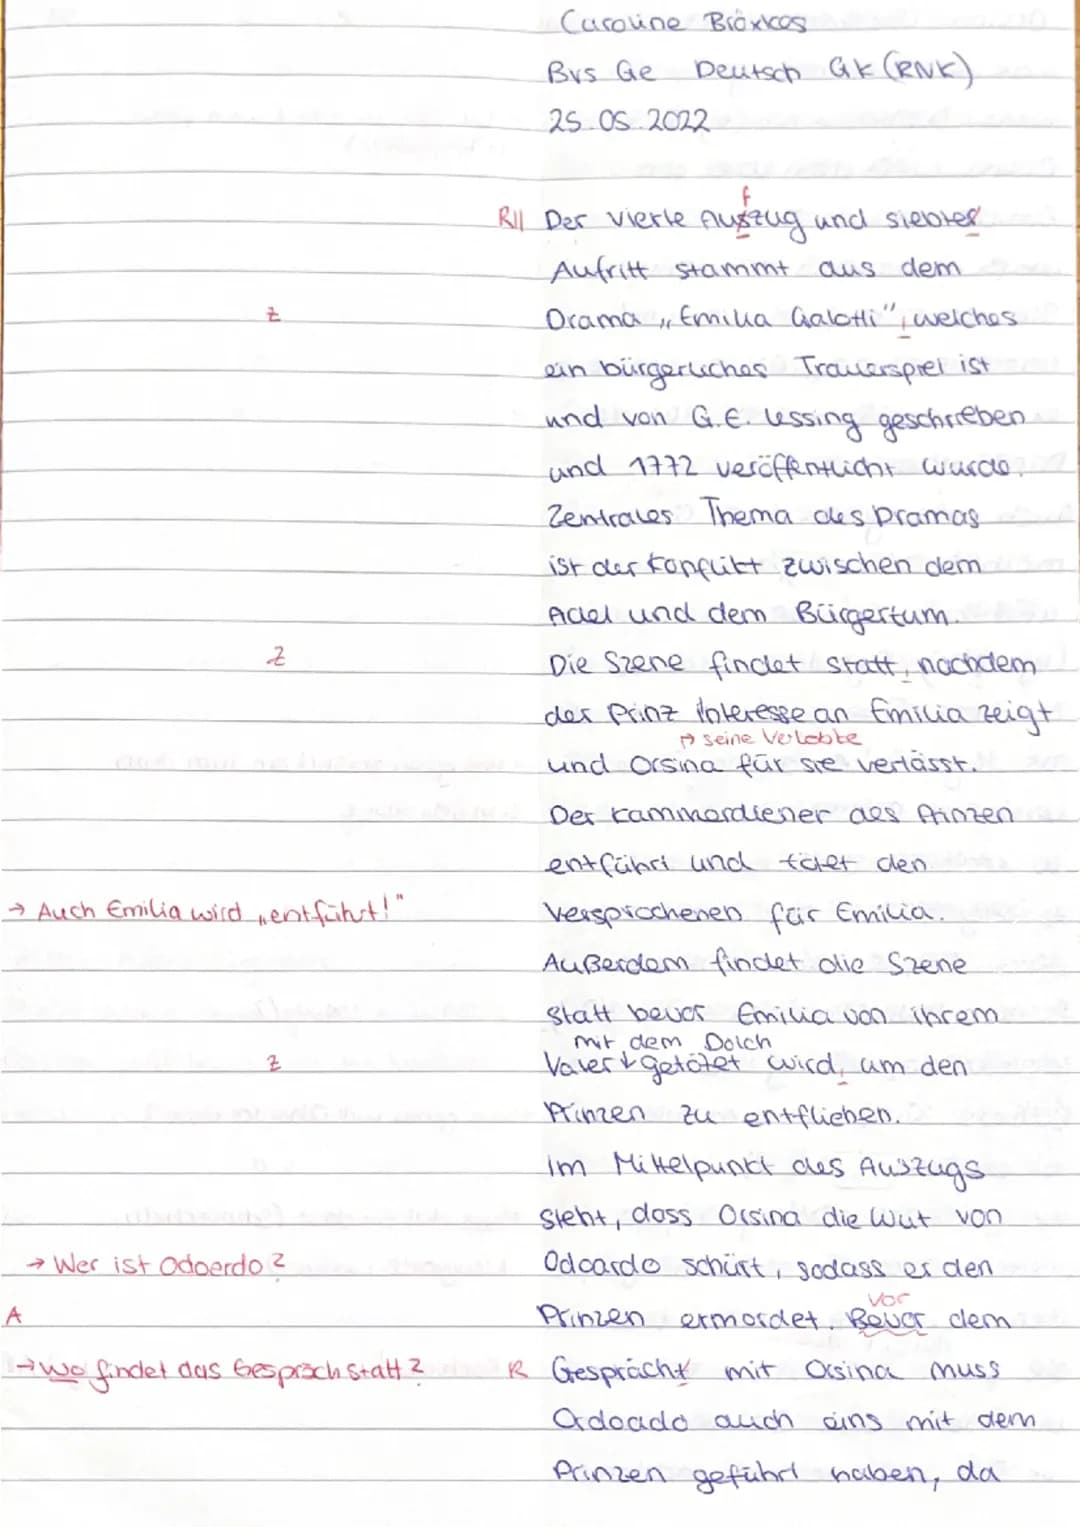 Caroline Bröxkes
Bvs Ge Deutsch GK (RNK)
25.05.2022
f
R|| Der vierte Auszug und siebter
Aufritt stammt aus dem
z Drama „Emilia Galotti", welches
ein bürgerliches Trauerspiel ist
und von G.E. Lessing geschrieben
und 1772 veröffentlicht wurde.
Zentrales Thema des Dramas
ist der Konflikt zwischen dem
Adel und dem Bürgertum.
z Die Szene findet statt, nachdem
der Prinz Interesse an Emilia zeigt
→ seine Verlobte
und Orsina für sie verlässt.
Der Kammerdiener des Prinzen
entführt und tötet den
→ Auch Emilia wird „entführt!" Versprochenen für Emilia.
Außerdem findet die Szene
statt bevor Emilia von ihrem
mit dem Dolch
z Vater getötet wird, um den
Prinzen zu entfliehen.
Im Mittelpunkt des Auszugs
steht, dass Orsina die Wut von
→ Wer ist Odoerdo? Odoardo schürt, sodass er den
vor
A Prinzen ermordet. Bevor dem
→ Wo findet das Gespräch statt? R Gesprächt mit Orsina muss
Ordoado auch eins mit dem
Prinzen geführt haben, da